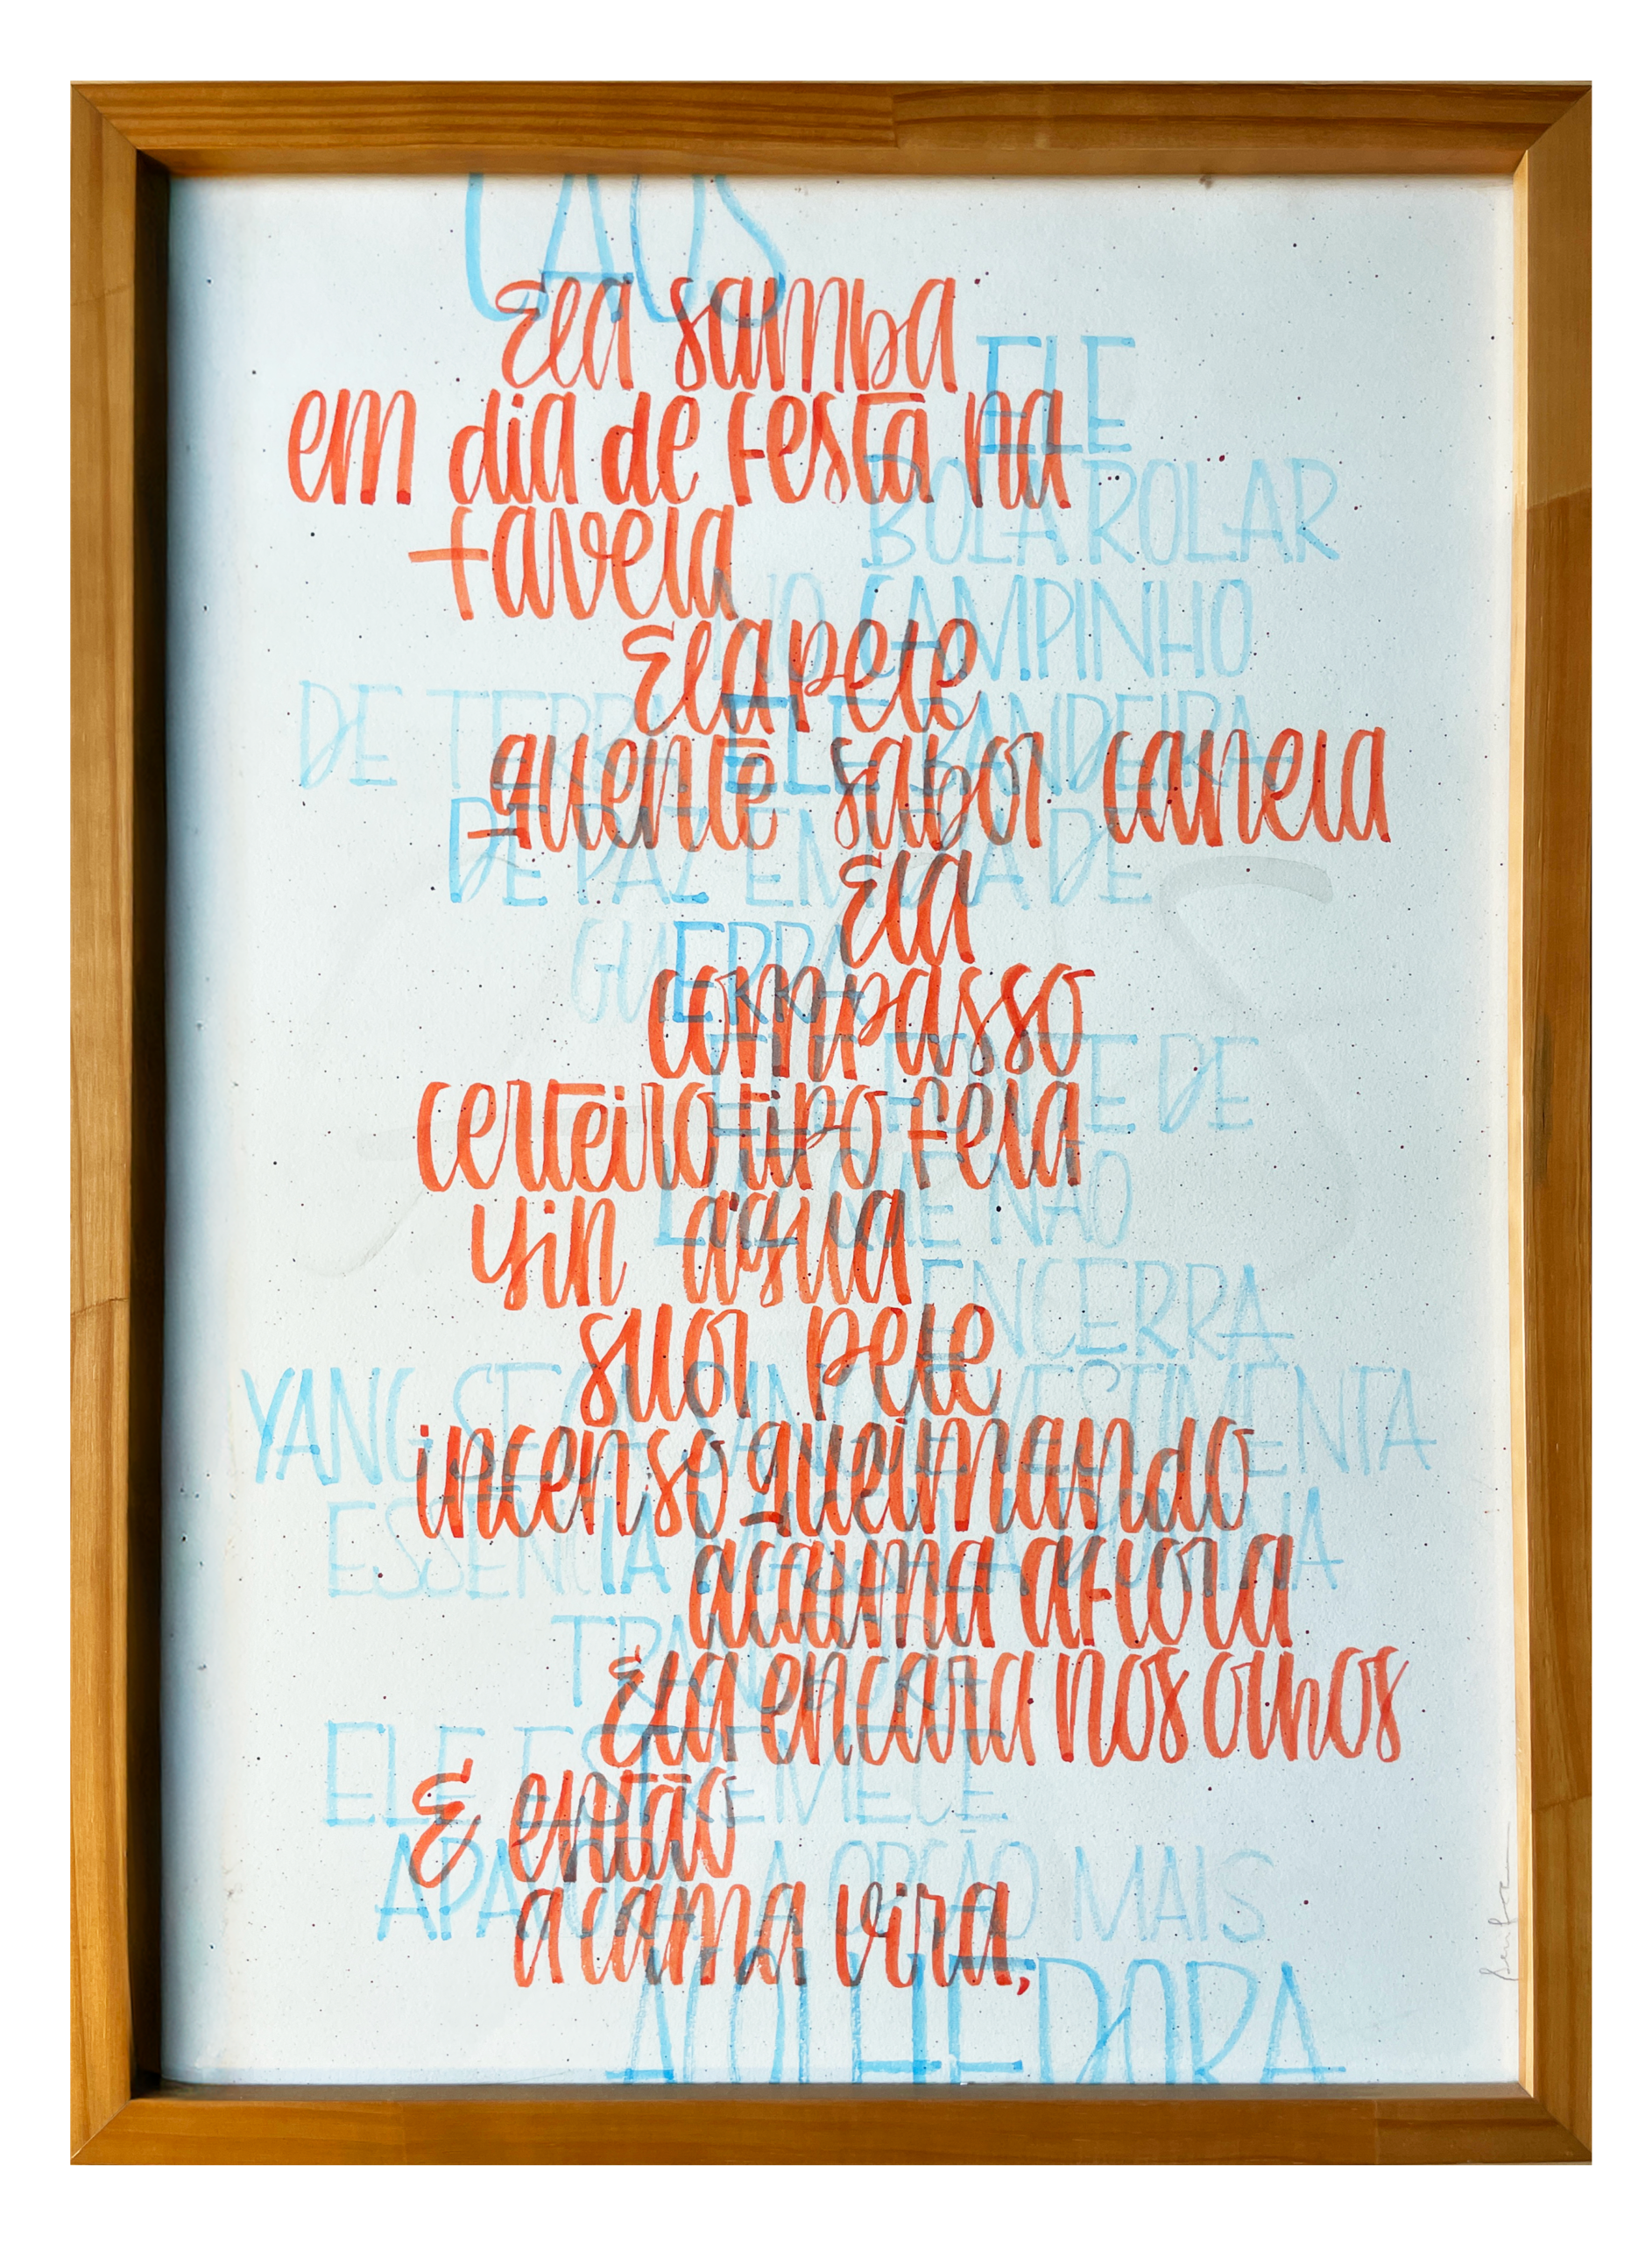 Ela samba
em dia de festa na
favela
Ela pele
quente sabor canela
Ela
compasso
certeiro tipo fela
yin água
suor pele
incenso queimando
acalma aflora
Ela encara nos olhos
E então
a cama vira,
CAOS
ELE
BOLA ROLAR
NO CAMPINHO
DE TERRA ELE BANDEIRA
DE PAZ EM DIA DE
GUERRA
ELE FONTE DE
LUZ QUE NÃO
ENCERRA
YANG VESTIMENTA
ESSENCIA
ELE ESTREMECE
A OPÇÃO MAIS
ACOLHEDORA